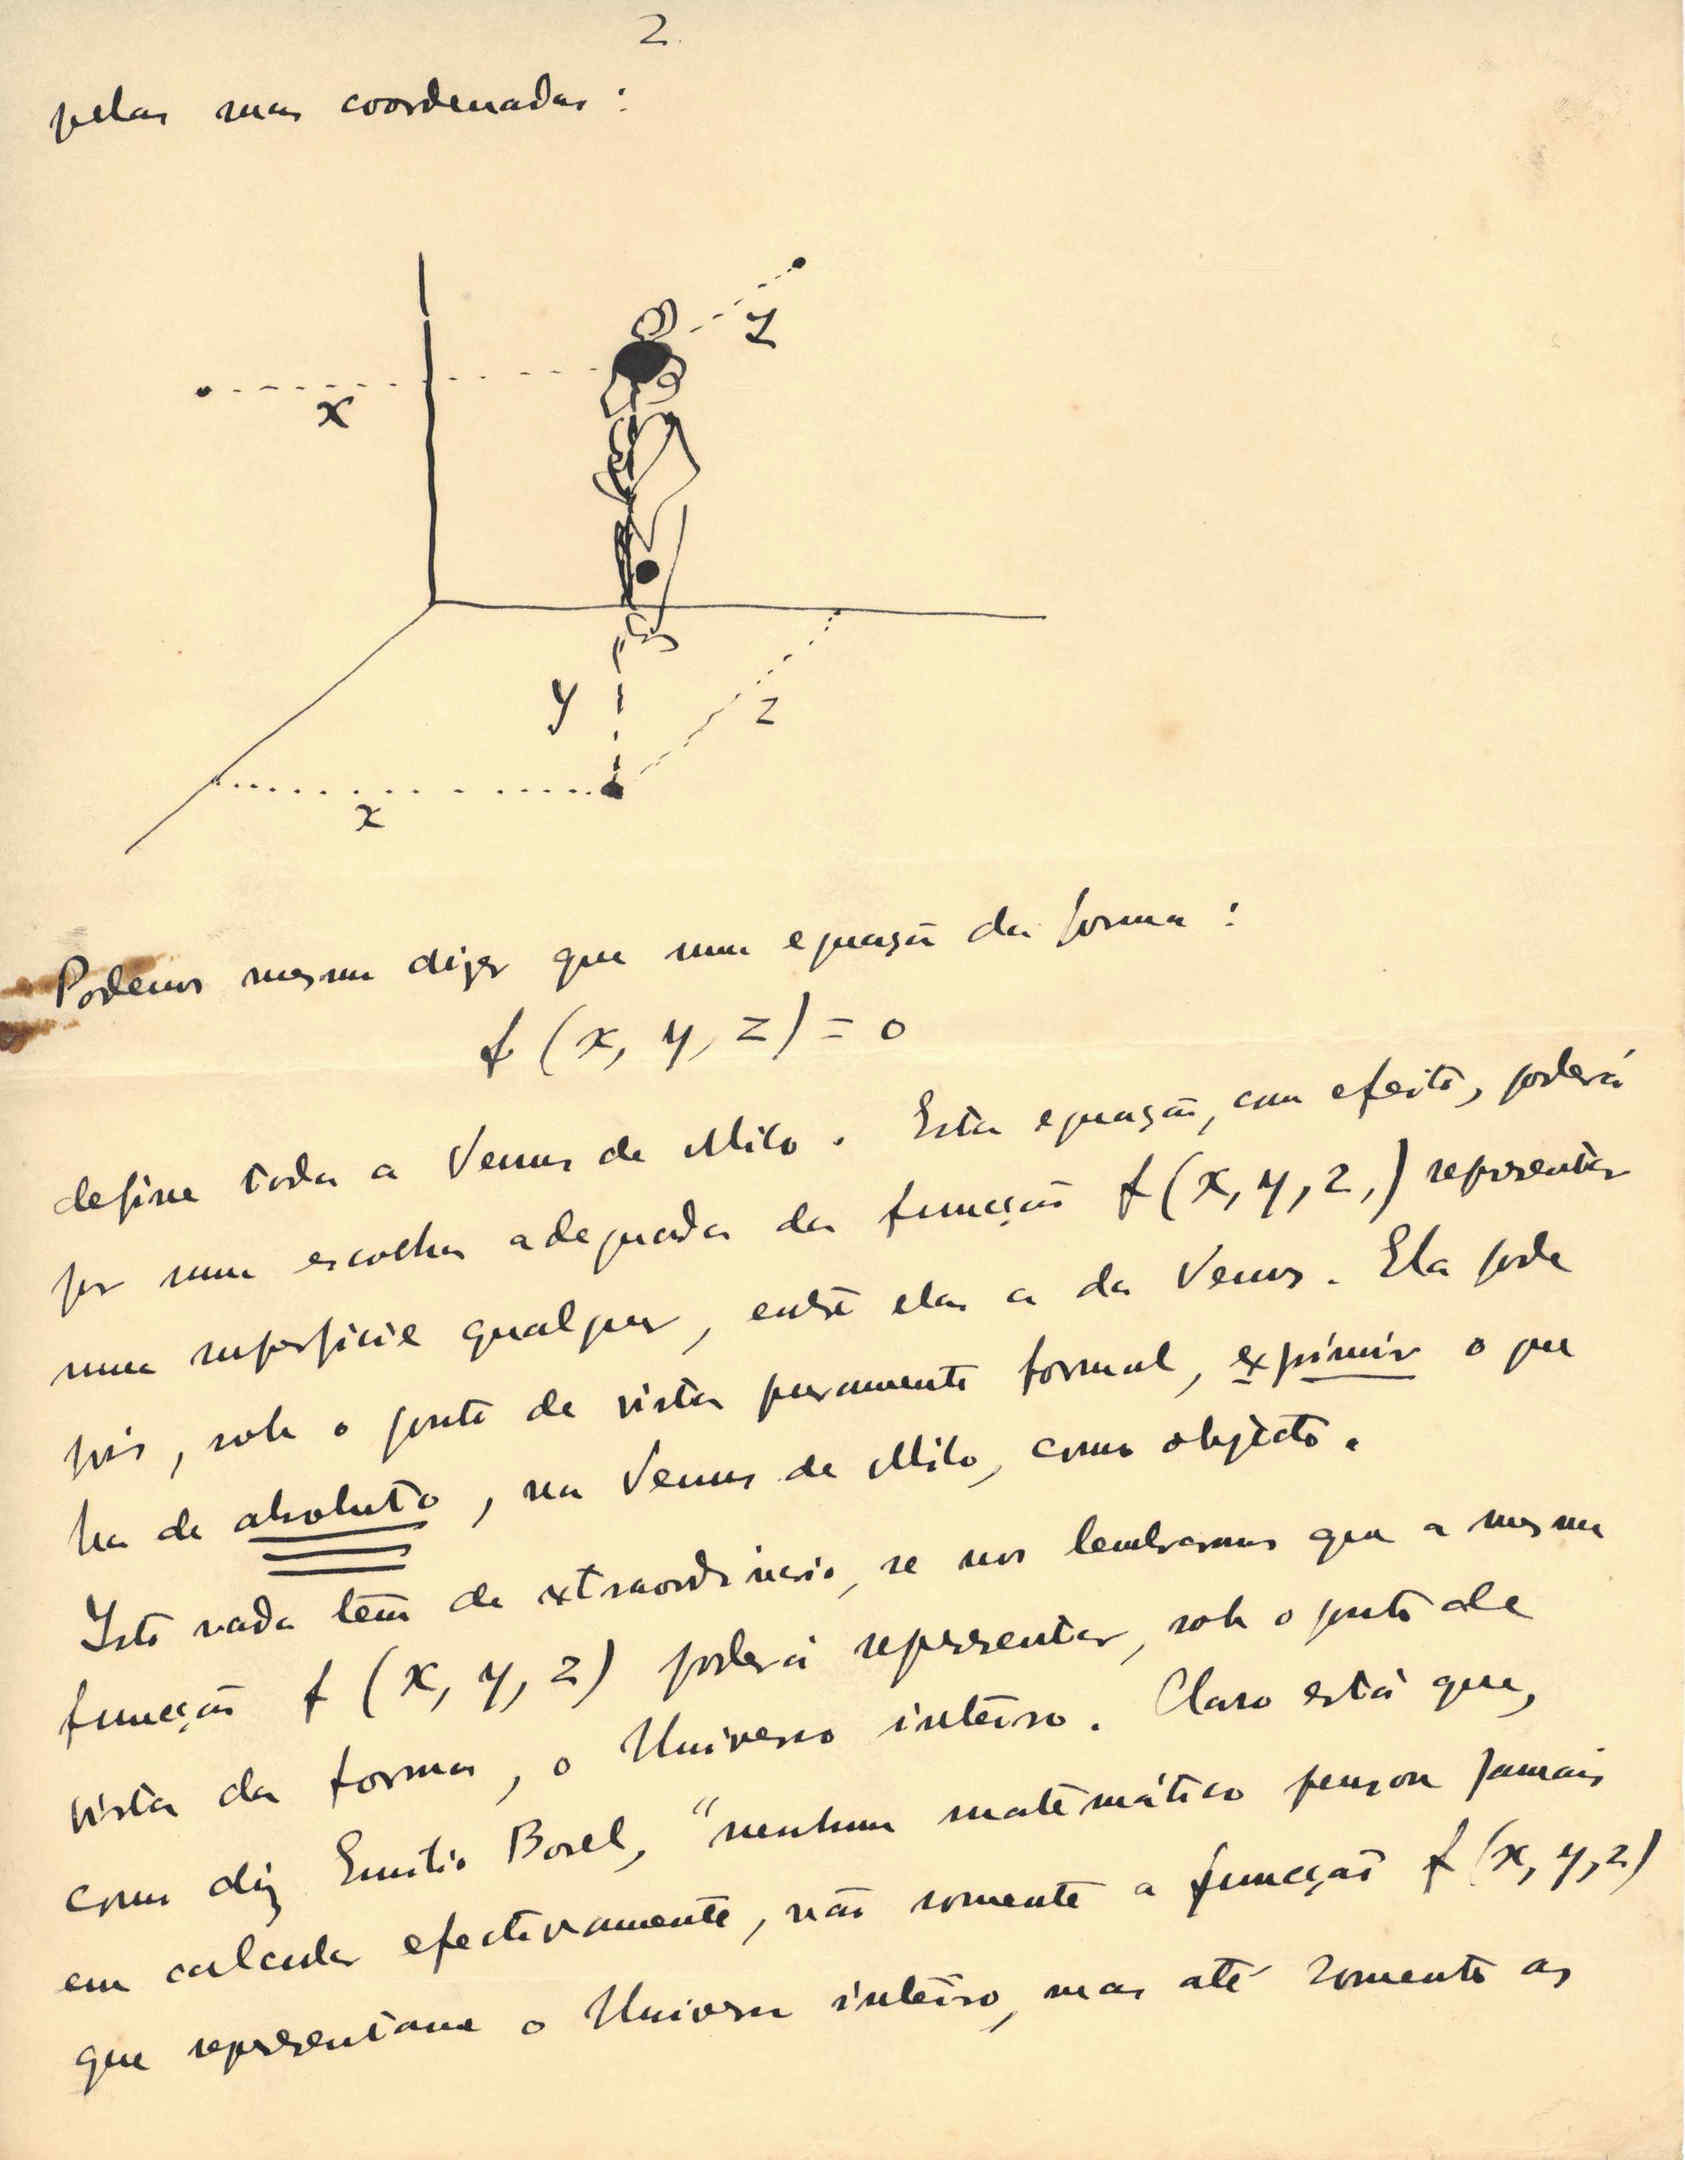 2.
pelas suas coordenadas :
z
x
y
z
x
Podemos mesmo dizer que uma equação da forma :
f (x, y, z) = 0
define toda a Venus de Milo . Esta equação, com efeito, poderá
por uma escolha adequada da funcção f (x, y, z,) representar
uma superficie qualquer, entre elas a da Venus . Ela pode
pois, sob o ponto de vista puramente formal, exprimir o que
ha de absoluto, na Venus de Milo, como objecto.
Isto nada tem de extraordinario, se nos lembrarmos que a mesma
funcção f (x, y, z) poderá representar, sob o ponto de
vista da forma, o Universo inteiro. Claro está que,
como diz Emilio Borel, "nenhum matemático pensou jamais
em calcular efectivamente, não somente a funcção f (x, y, z)
que representasse o Universo inteiro, mas até somente as